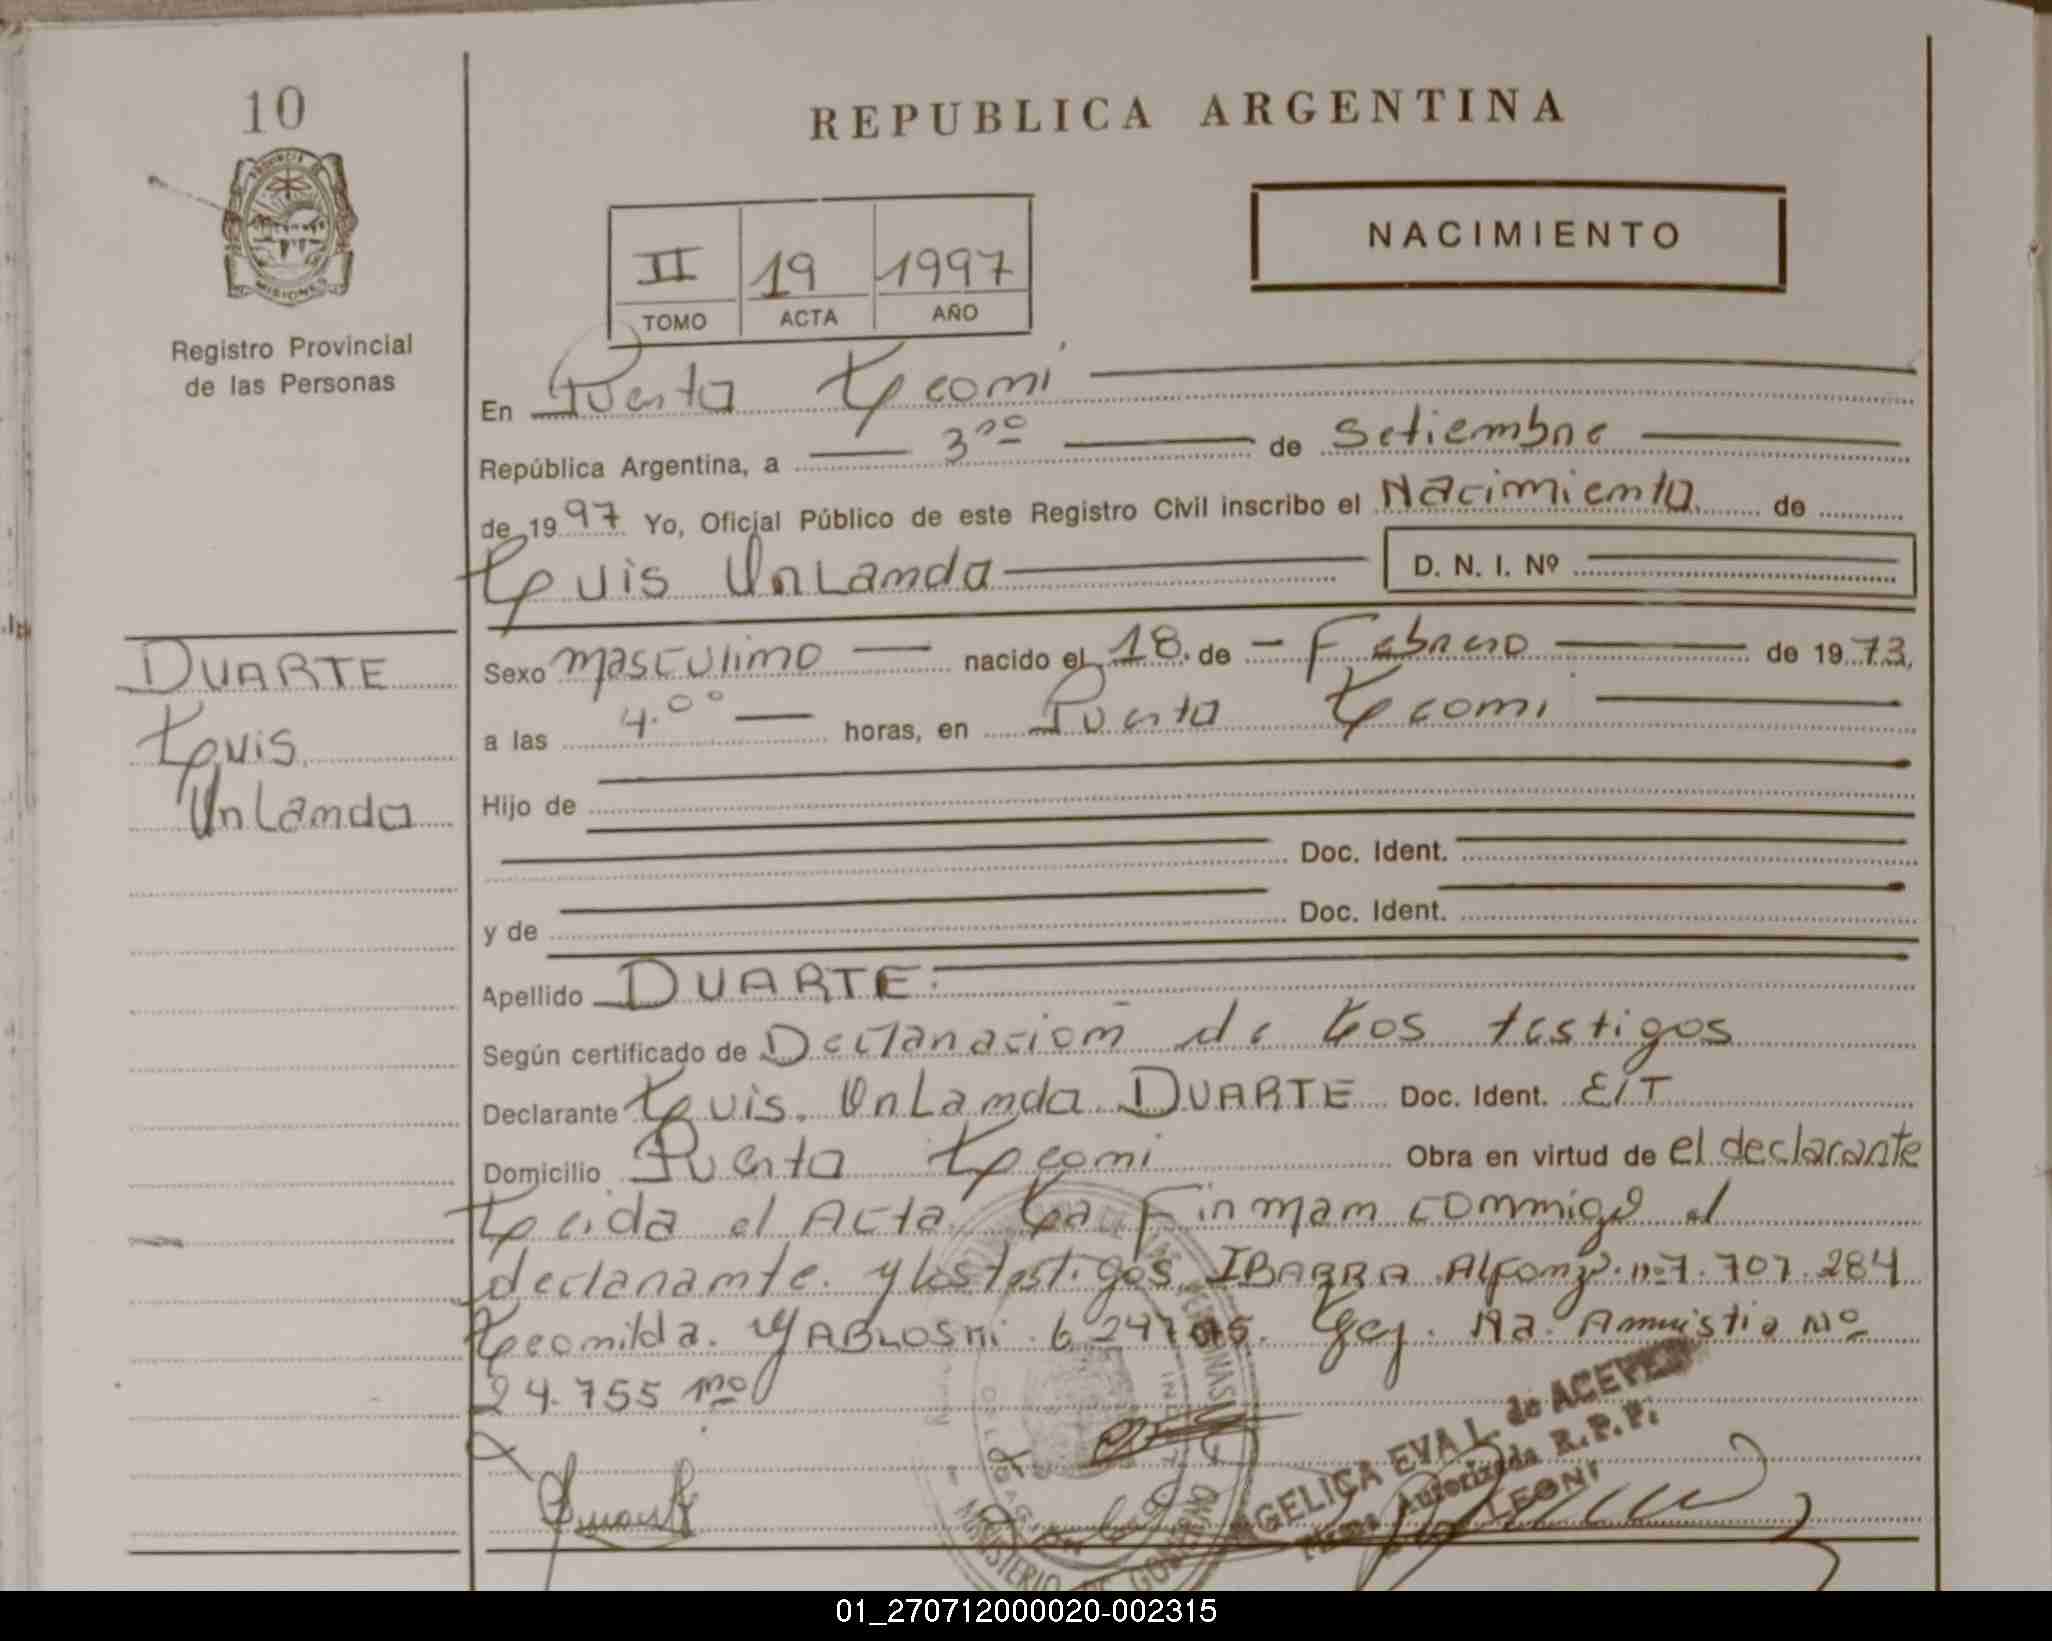 10
REPUBLICA ARGENTINA
NACIMIENTO
II 19 1997
TOMO ACTA AÑO
PROVINCIA DE
MISIONES
Registro Provincial
de las Personas
En Puerto Leoni
República Argentina, a 3ro de Setiembre
de 1997 Yo, Oficial Público de este Registro Civil inscribo el Nacimiento de
Luis Orlando D. N. I. Nº
Sexo masculino nacido el 18 de Febrero de 1973,
a las 4.00 horas, en Puerto Leoni
DUARTE
Luis
Orlando
Hijo de
Doc. Ident.
y de Doc. Ident.
Apellido DUARTE
Según certificado de Declaracion de Los testigos
Declarante Luis Orlando DUARTE Doc. Ident. E/T
Domicilio Puerto Leoni Obra en virtud de el declarante
Leida el Acta La Firman conmigo el
declarante y los testigos IBARRA Alfonzo nº 7.707.284
Leonilda YABLOSKI 6.247 Ley Na. Amnistia Nº
24.755
ANGELICA EVA L. de ACEVEDO
Autorizada R.P.P.
LEONI
MINISTERIO DE GOBIERNO
01_270712000020-002315